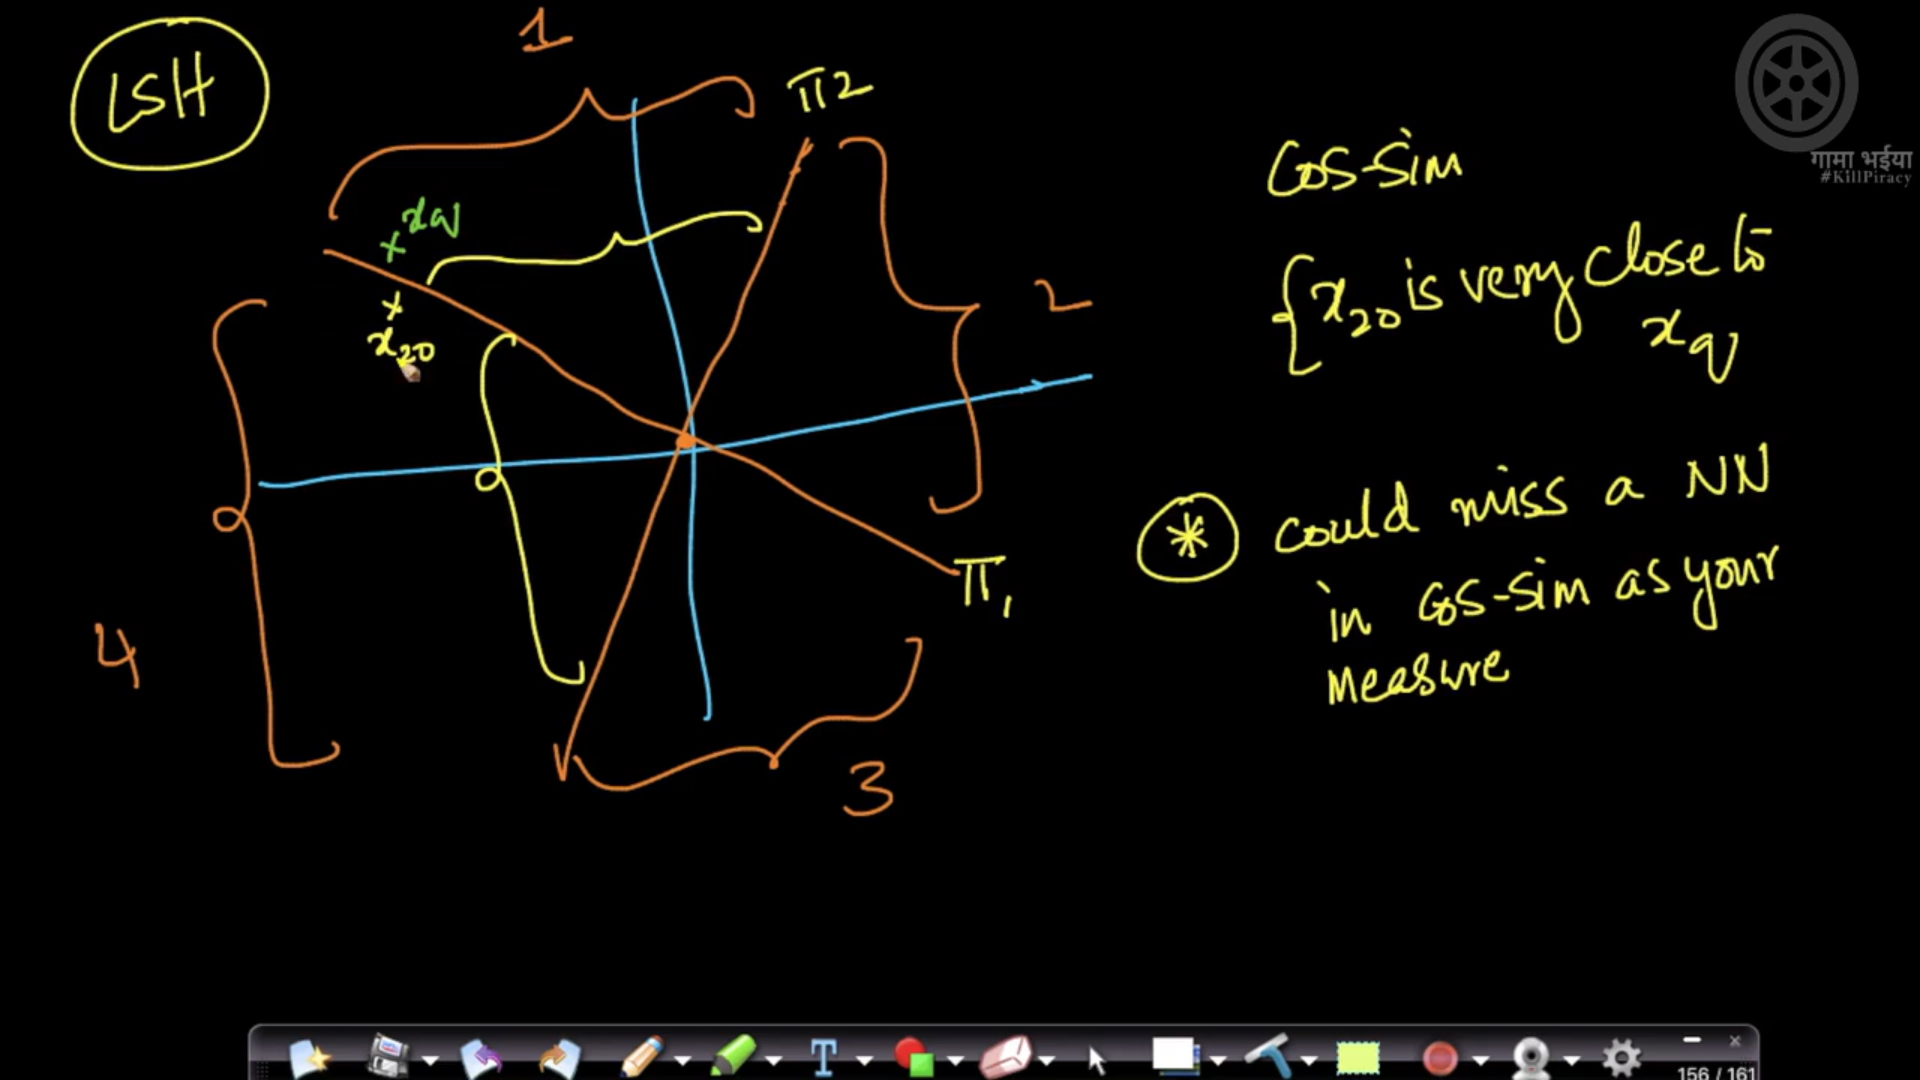 LSH
1
π2
xq
x20
2
4
π1
3
Cos-Sim
x20 is very close to
xq
* could miss a NN
in cos-sim as your
measure
गामा भईया
#KillPiracy
T
156 / 161